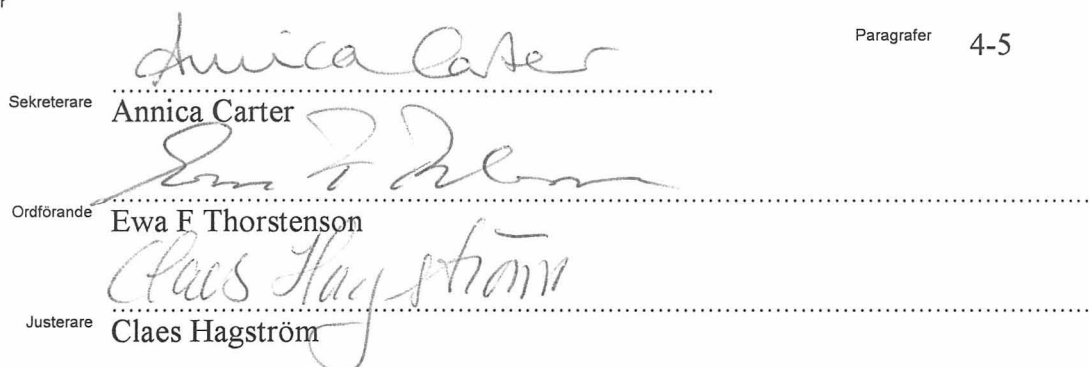 Annica Carter
Paragrafer 4-5
Sekreterare Annica Carter
Ordförande Ewa F Thorstenson
Claes Hagström
Justerare Claes Hagström